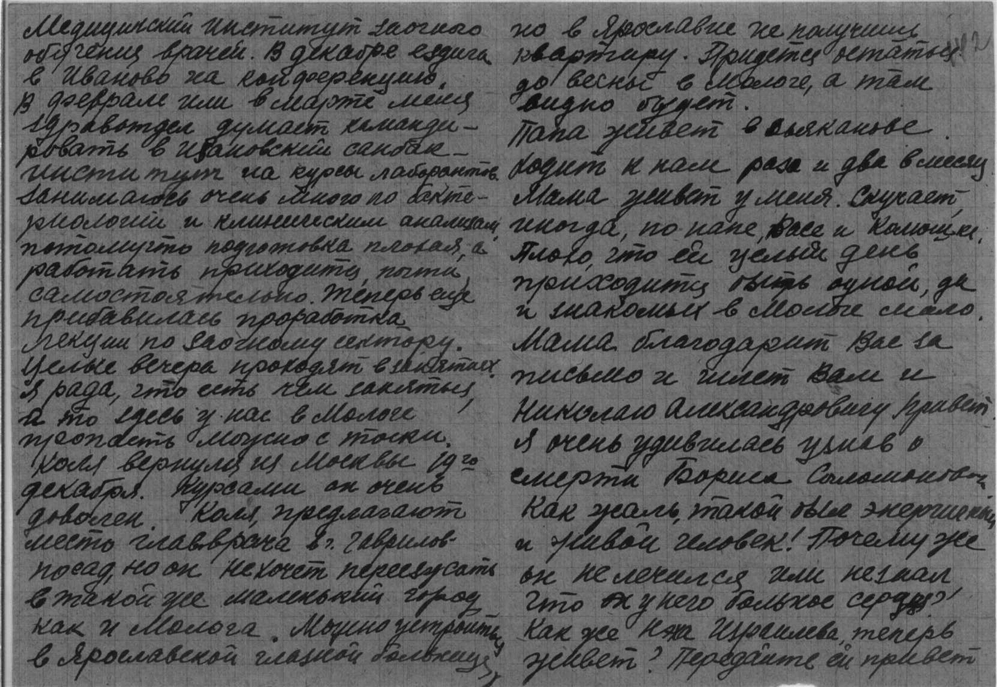 Медицинский институт заочного
обучения врачей. В декабре ездила
в Иваново на конференцию.
В феврале или в марте меня
здравотдел думает команди-
ровать в Ивановский санбак-
институт на курсы лаборантов.
Занимаюсь очень много по бакте-
риологии и клиническим анализам,
потомучто подготовка плохая, а
работать приходится почти
самостоятельно. Теперь еще
прибавилась проработка
лекции по заочному сектору.
Целые вечера проходят в занятиях.
Я рада, что есть чем заняться,
а то здесь у нас в Мологе
пропасть можно с тоски.
Коля вернулся из Москвы 19го
декабря. Курсами он очень
доволен. Коля, предлагают
место главврача в г. Гаврилов-
посад, но он не хочет переезжать
в такой же маленький город
как и Молога. Можно устроиться
в Ярославской глазной больнице,
но в Ярославле не получишь
квартиру. Придется остаться
до весны в Мологе, а там
видно будет.
Папа живет в
ходит к нам раза и два в месяц
Мама живет у меня. Скучает,
иногда, по папе, Васе и
Плохо, что ей целый день
приходится быть одной, да
и знакомых в Мологе мало.
Мама благодарит Вас за
письмо и шлет Вам и
Николаю Александровичу привет
Я очень удивилась узнав о
смерти Бориса
Как жаль, такой был энергичный
и живой человек! Почему же
он не лечился или не знал
что у него больное сердце?
Как же Израилевна теперь
живет? Передайте ей привет